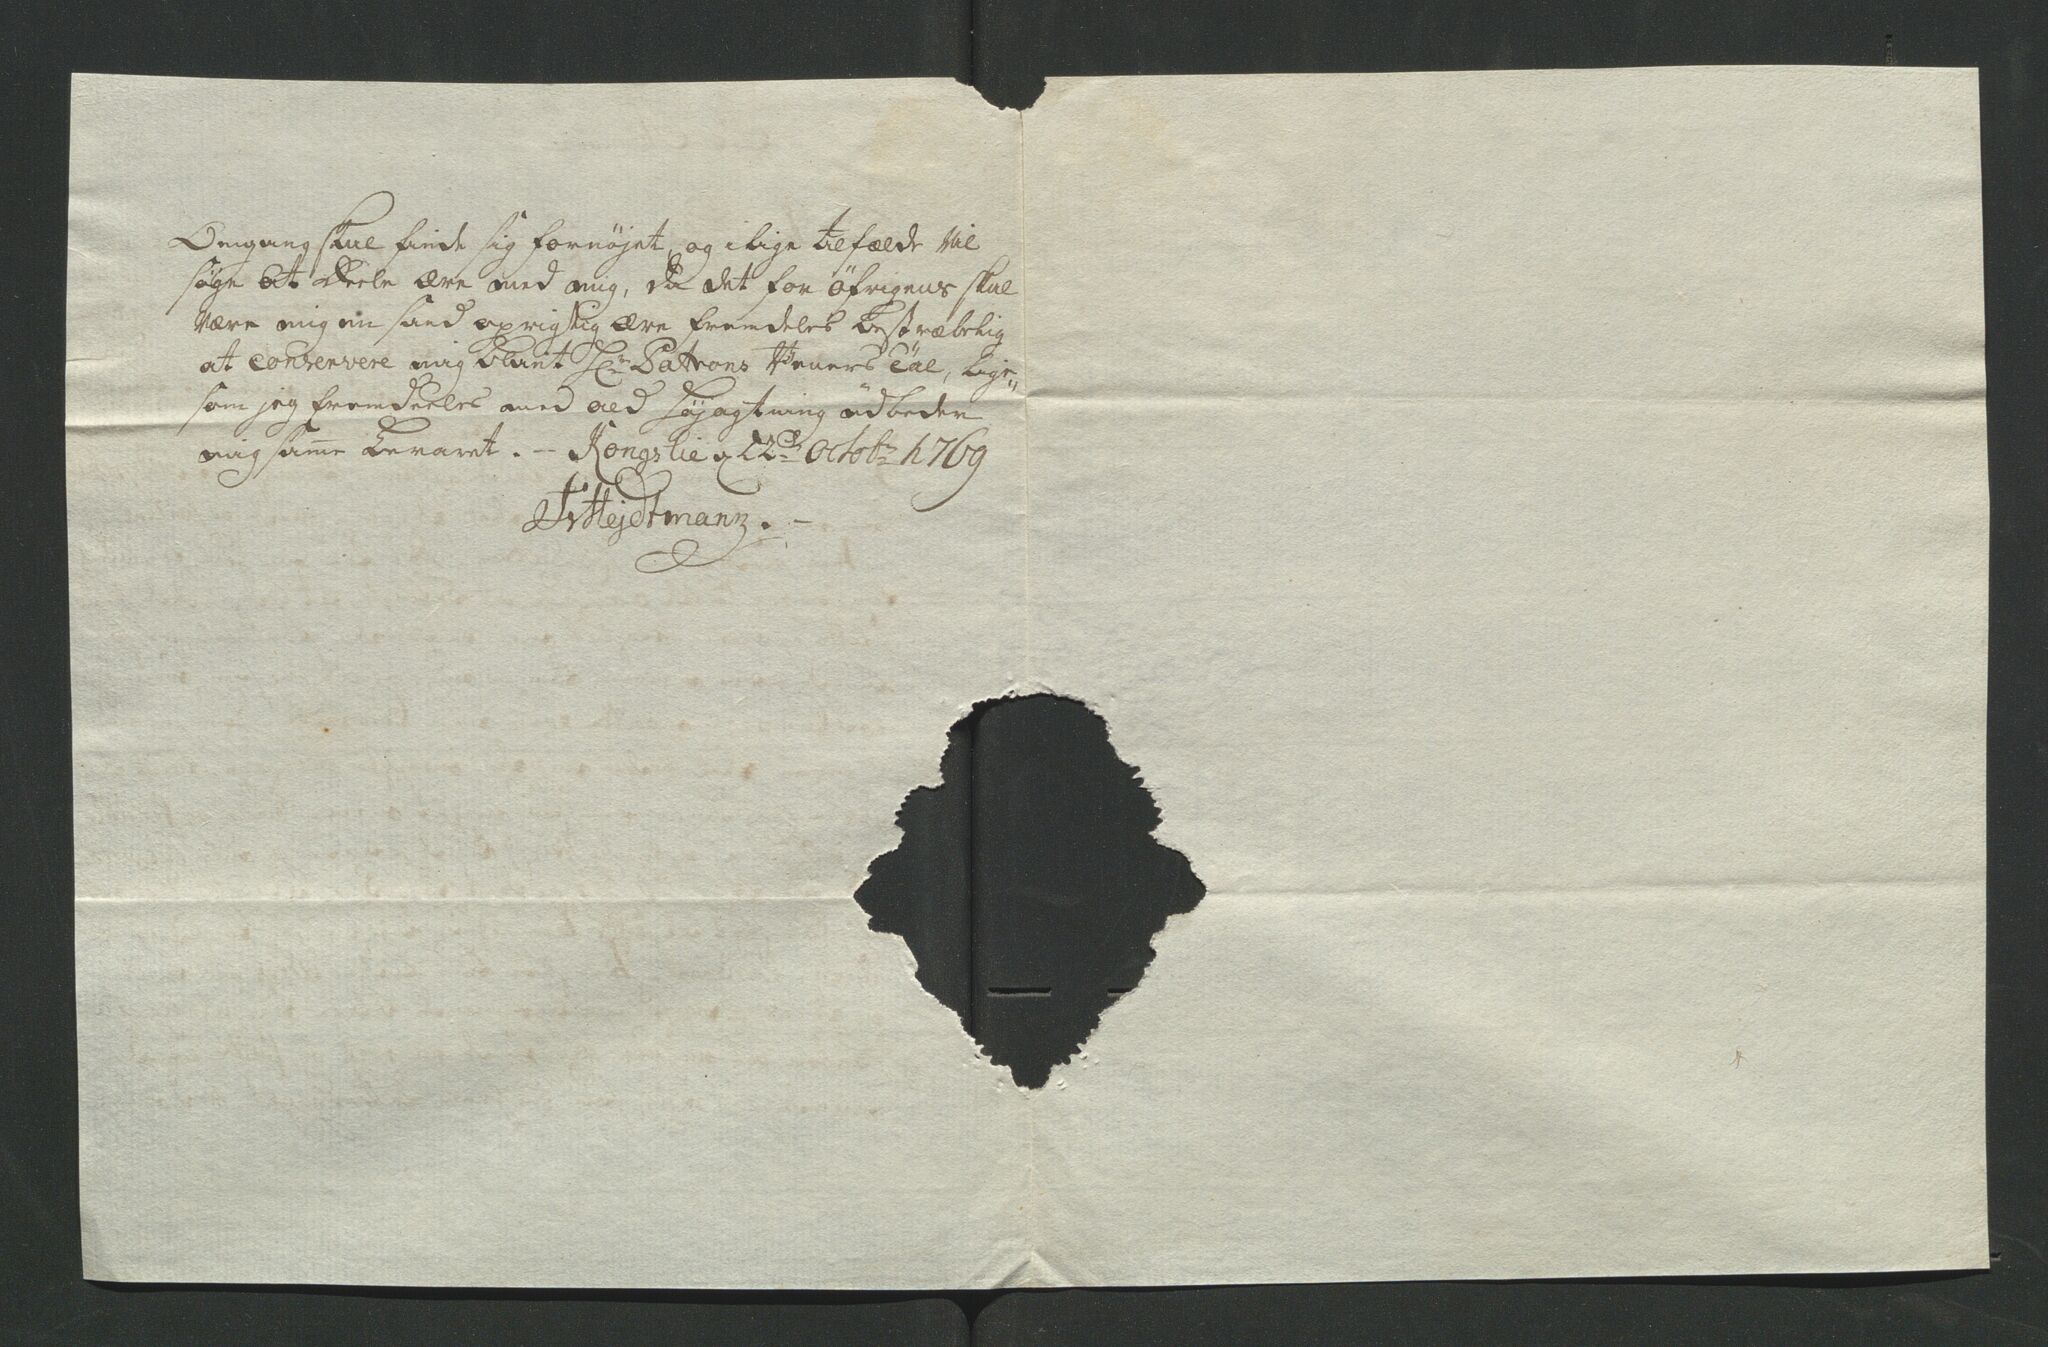 Omgang skul finde sig fornøjet, og i lige tilfælde vil
søge at deele ære med mig, da det for öfrigens skal
være mig en sand oprigtig ære fremdeles bestræbelig
at conservere mig blant Hr: Patrons Veners Tal, lige-
som jeg fremdeeles med all Højagtning udbeder
mig samme bevaret. – Kongslie d 22de Octobr 1769
Hejdtmann. –